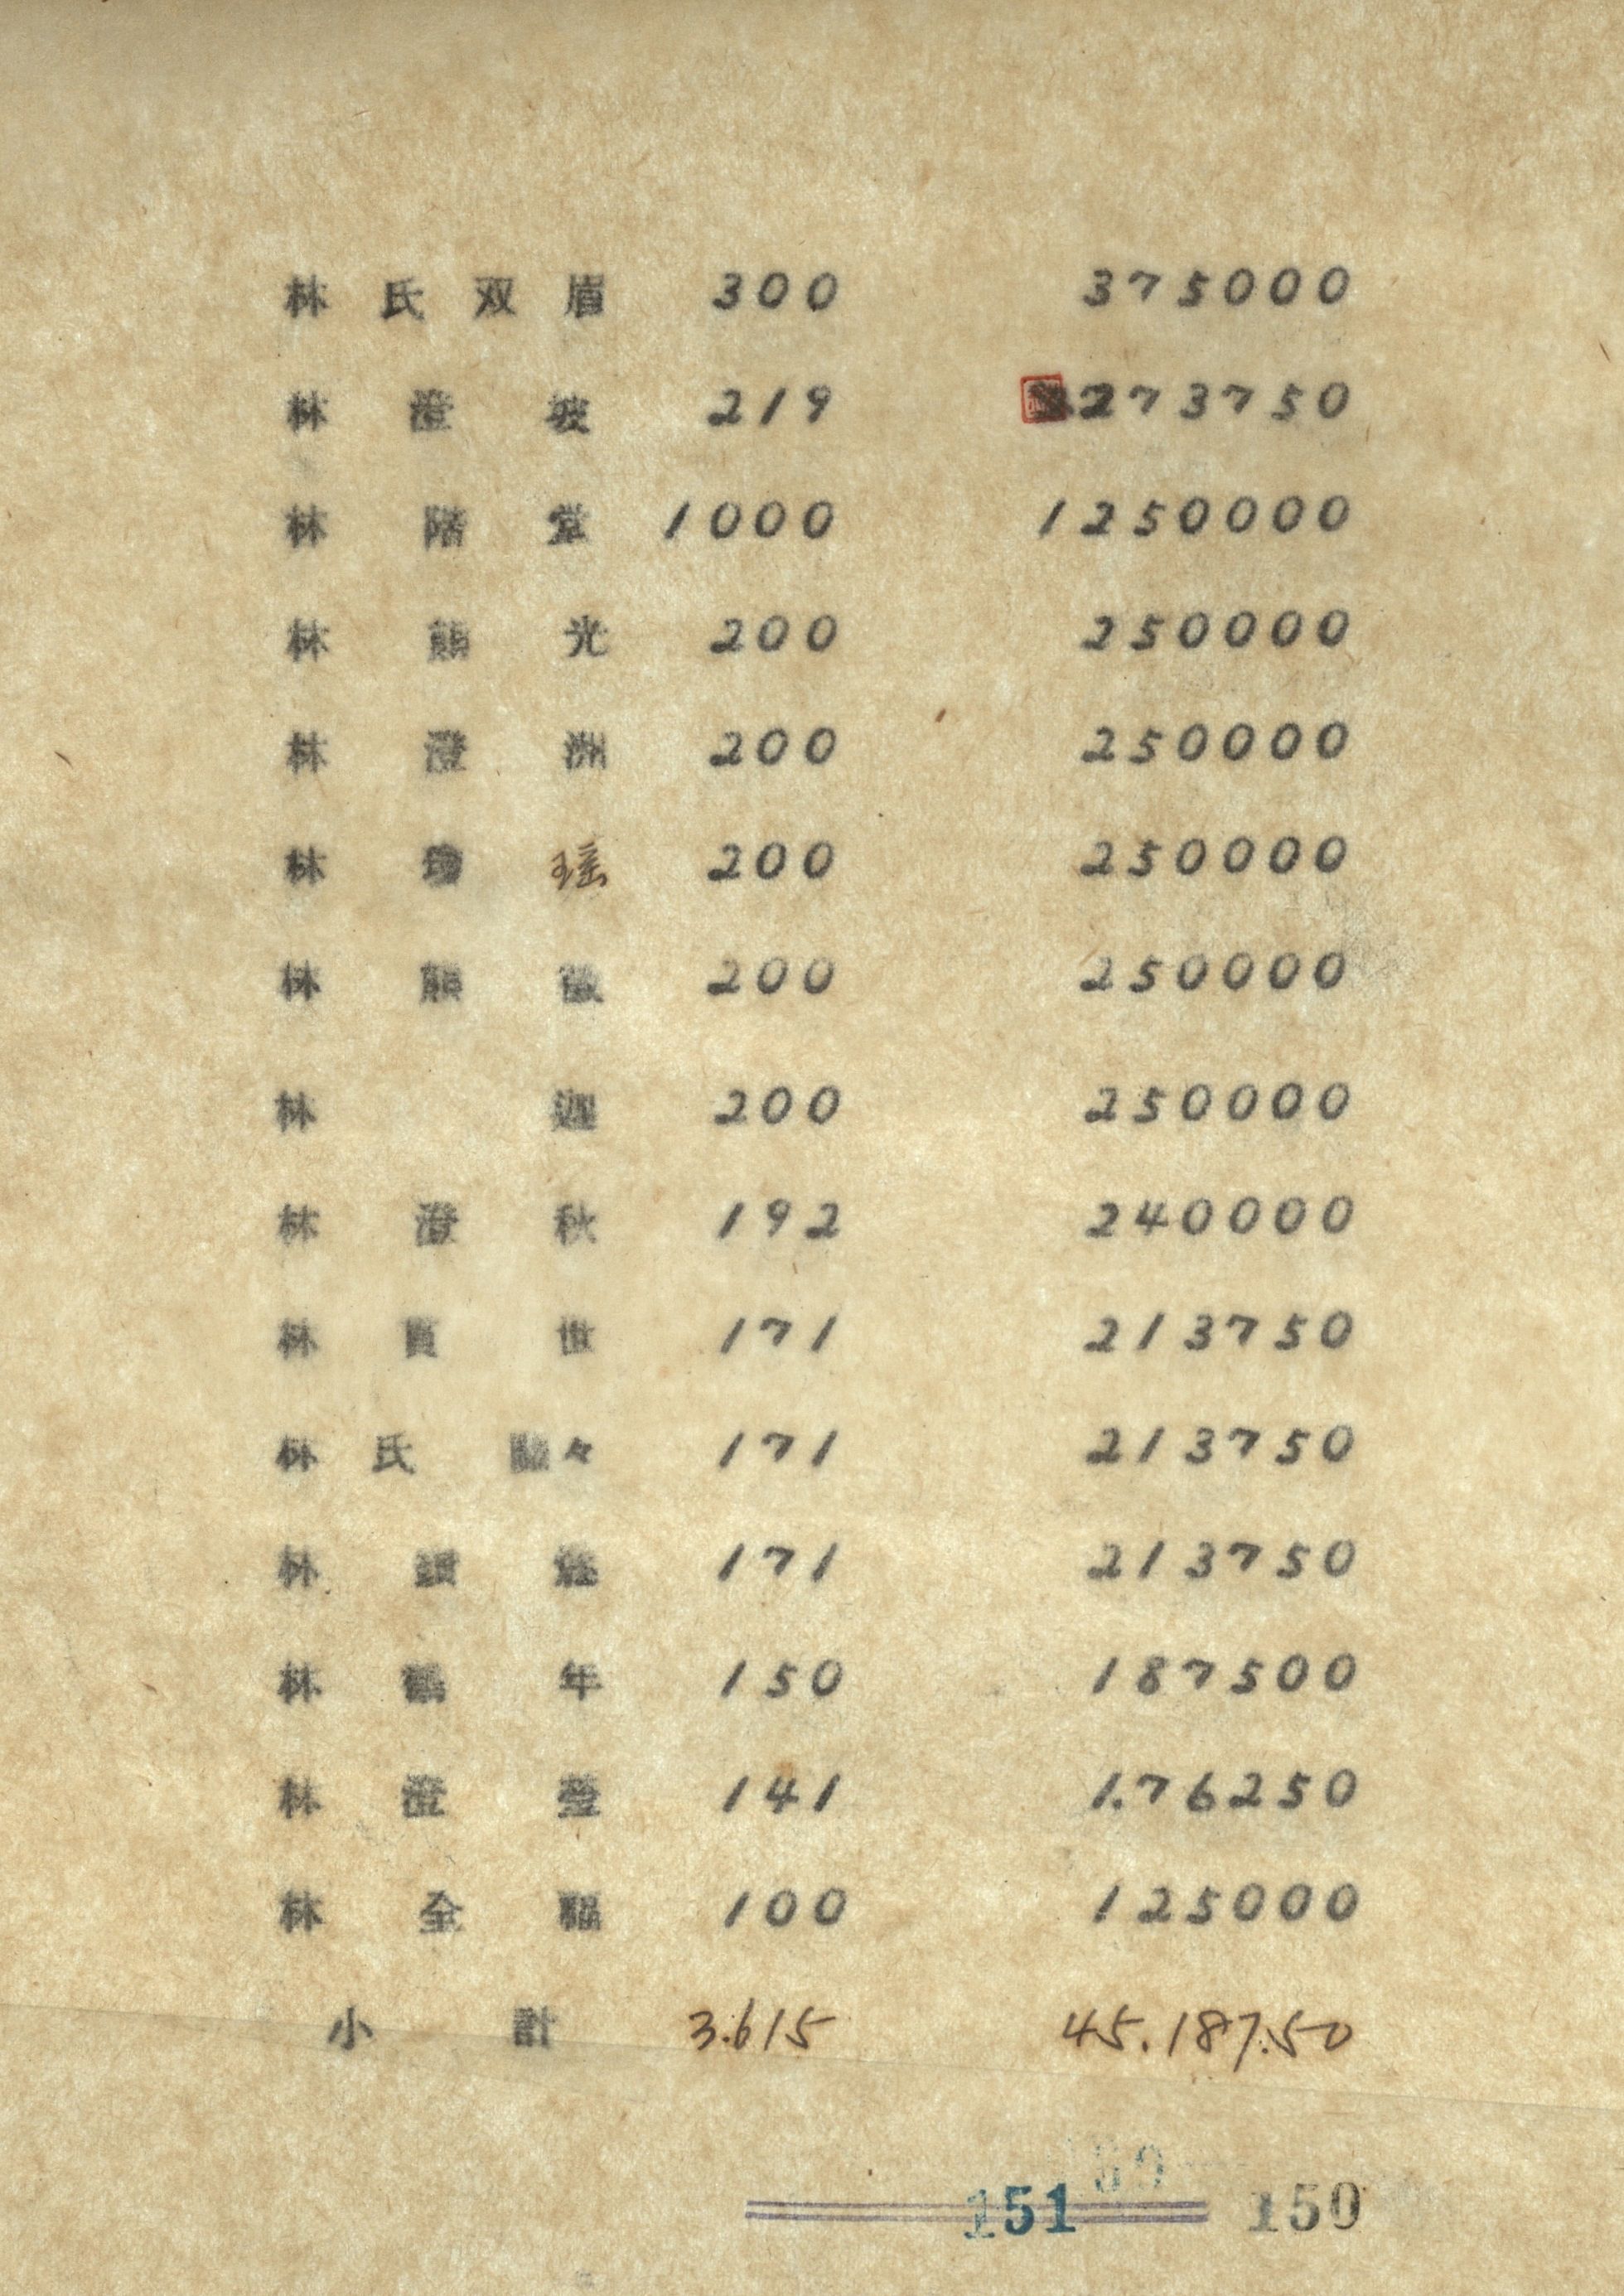 林氏双眉 300 375000
林澄坡 219 273750
林階堂 1000 1250000
林熊光 200 250000
林澄洲 200 250000
林瓊瑶 200 250000
林熊徵 200 250000
林迦 200 250000
林澄秋 192 240000
林 世 171 213750
林氏 々 171 213750
林 171 213750
林鶴年 150 187500
林澄瑩 141 1.76250
林全福 100 125000
小計 3.615 45.187.50
151 150